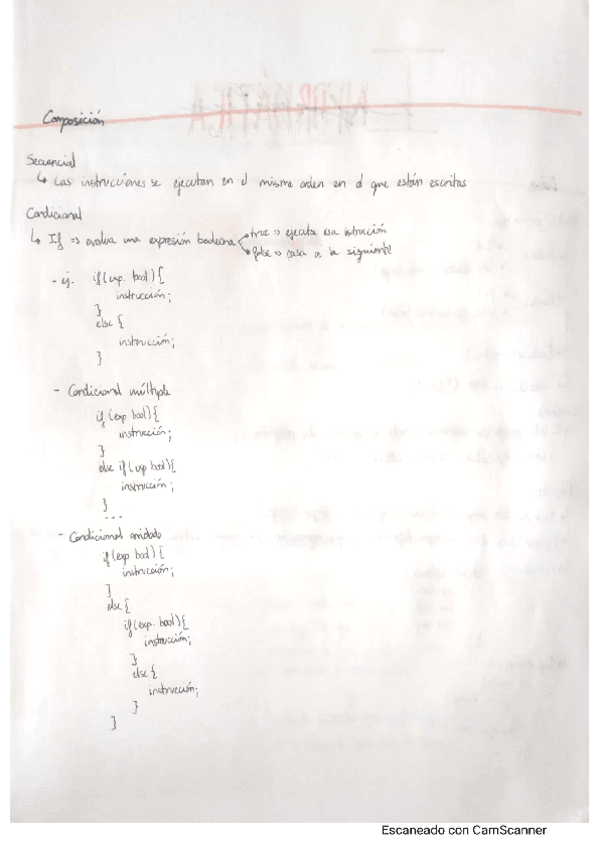 Composición
Secuencial
↳ Las instrucciones se ejecutan en el mismo orden en el que están escritas
Condicional
↳ If => evalua una expresión booleana
true => ejecuta esa intrucción
false => pasa a la siguiente
- ej. if(exp. bool.){
instrucción;
}
else {
instrucción;
}
- Condicional múltiple
if (exp bool){
instrucción;
}
else if (exp bool){
instrucción;
}
...
- Condicional anidado
if(exp bool) {
instrucción;
}
else {
if(exp. bool){
instrucción;
}
else {
instrucción;
}
}
Escaneado con CamScanner